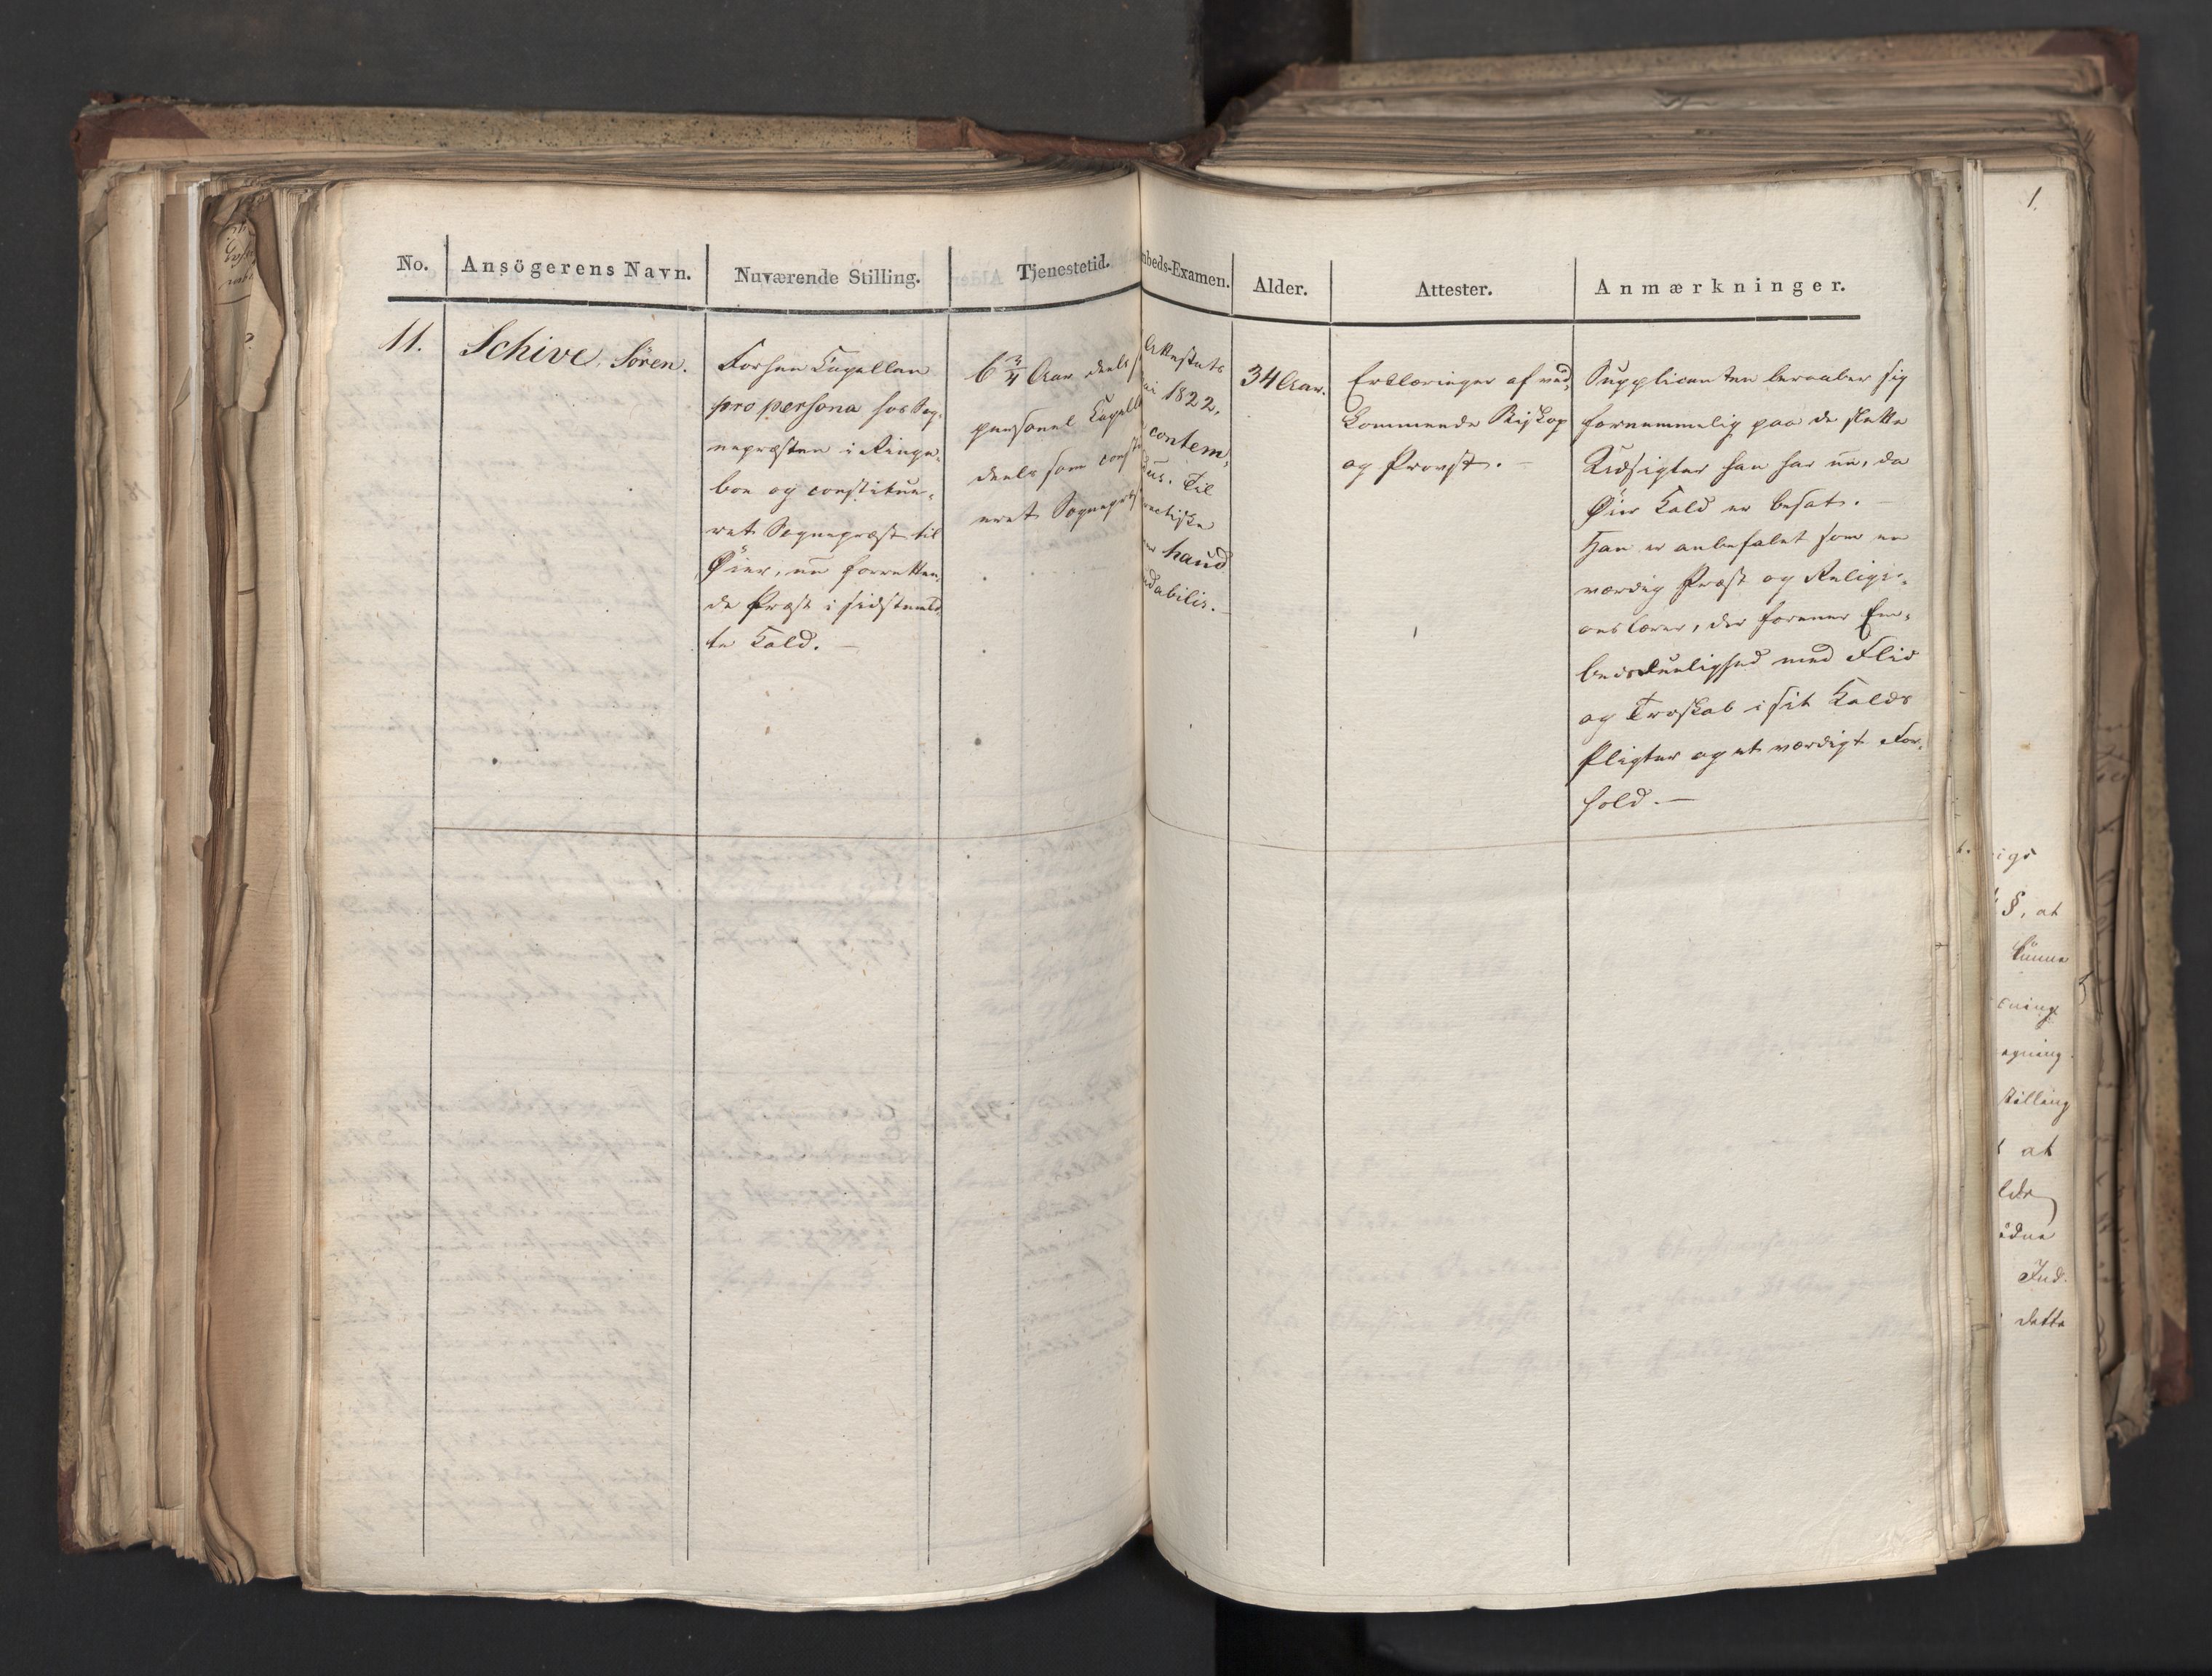 No.
Ansögerens Navn.
Nuværende Stilling.
Tjenestetid.
nbeds-Examen.
Alder.
Attester.
Anmærkninger.
11.
Schive, Sören.
Forhen Capellan
pro persona hos Sog-
nepræsten i Ringe-
boe og constitue-
ret Sognepræst til
Öier, nu forretten-
de Præst i sidstmeld-
te Kald. —
6 3/4 Aar deels
personel Capell
deels som const
eret Sognepr
Attestats
ai 1822,
contem-
dus. Til
ractiske
haud
dabilis. —
34 Aar.
Erklæringer af ved-
kommende Biskop
og Provst. —
Supplicanten beraaber sig
fornemmelig paa de slette
Udsigter han har nu, da
Öier Kald er besat. —
Han er anbefalet som en
værdig Præst og Religi-
onslærer, der forener Em-
bedsduelighed med Flid
og Troskab i sit Kalds
Pligter og et værdigt For-
hold. —
1.
igs
§, at
kunne
ening
egning
stilling
at
Ind-
dette